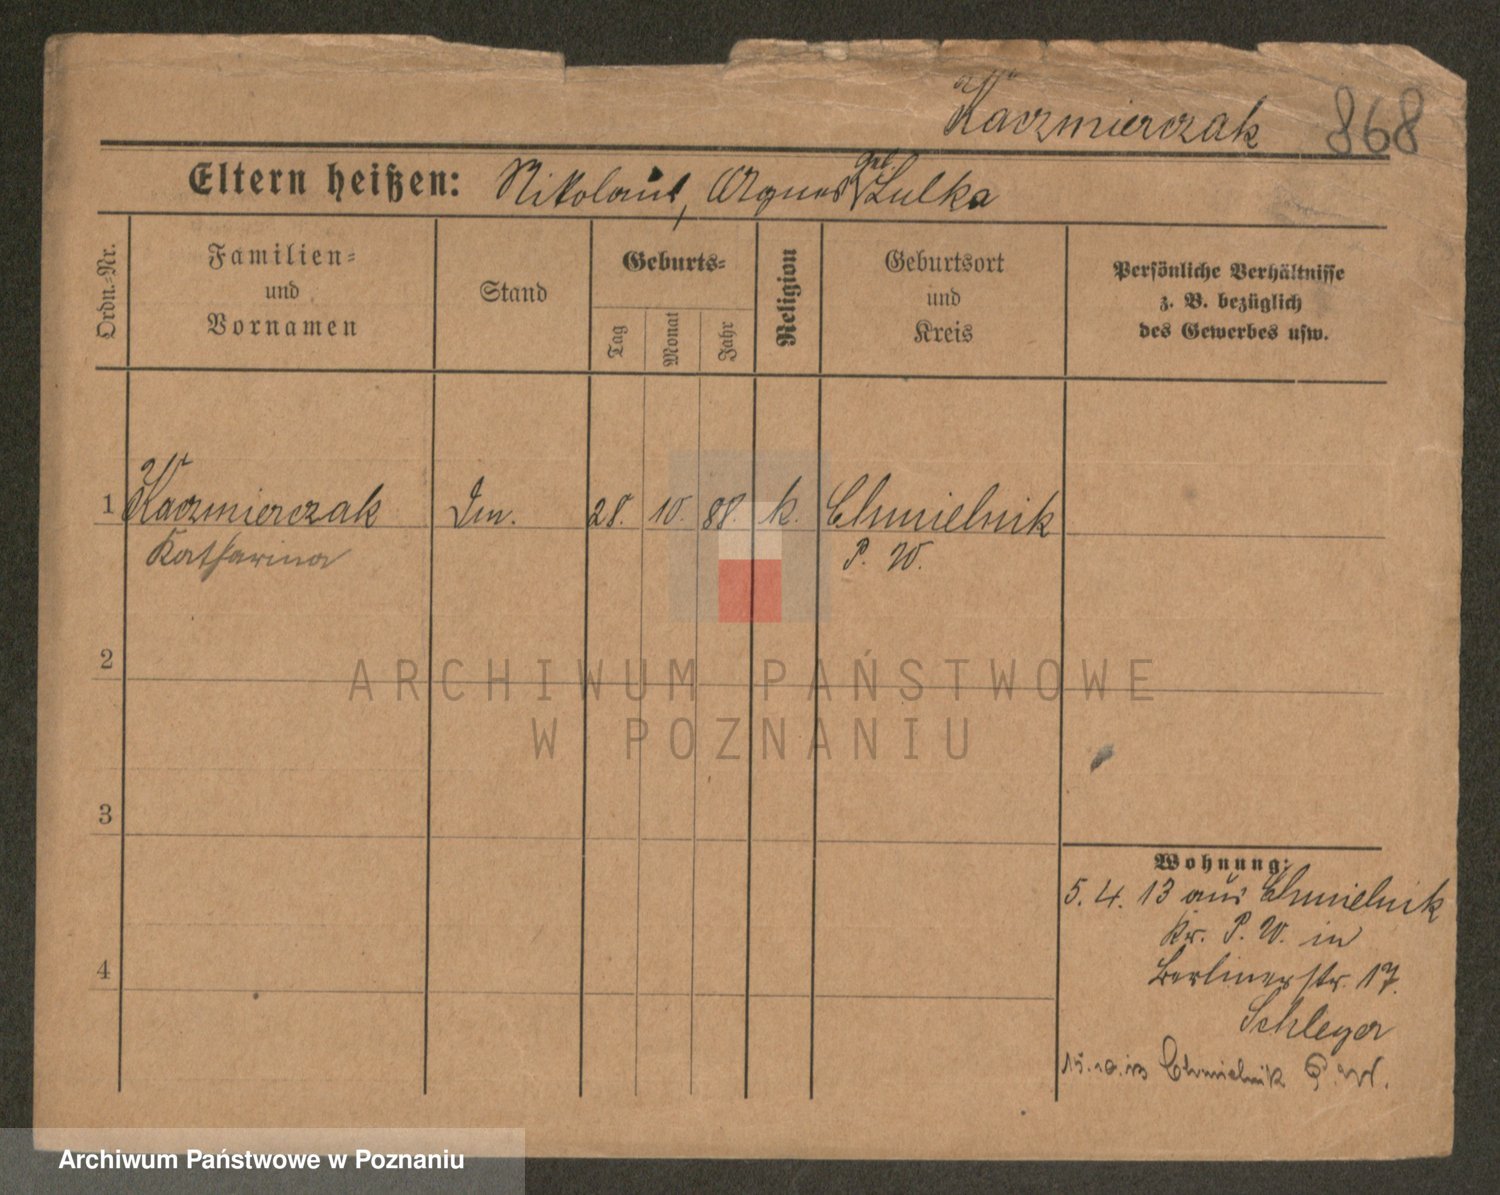 Kaczmierczak 868
Eltern heißen: Nikolaus, Agnes geb. Lulka
Ordn.-Nr.
Familien-
und
Vornamen
Stand
Geburts-
Tag
Monat
Jahr
Religion
Geburtsort
und
Kreis
Persönliche Verhältnisse
z. B. bezüglich
des Gewerbes usw.
1 Kaczmierczak Dm. 28. 10. 88. k. Chmielnik
Katharina P. W.
2
3
4
ARCHIWUM PAŃSTWOWE
W POZNANIU
Wohnung:
5. 4. 13 aus Chmielnik
Kr. P. W. in
Berlinerstr. 17.
Schleyer
15.10.13 Chmielnik P. W.
Archiwum Państwowe w Poznaniu